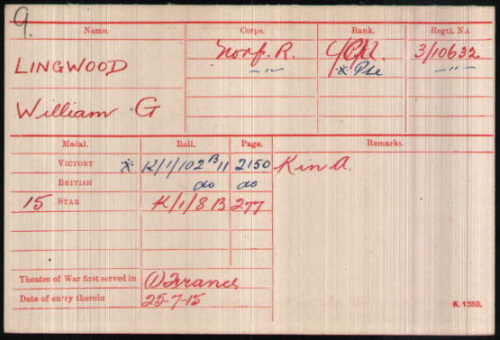 9.
Name. Corps. Rank. Regtl. No.
LINGWOOD Norf. R. 3/10632
William G —"— * Pte —"—
Medal. Roll. Page. Remarks.
VICTORY * K/1/102 B 11 2150 Kin A.
BRITISH do do
15 STAR K/1/8 B 277
Theatre of War first served in (1) France
Date of entry therein 25-7-15
K. 1380.